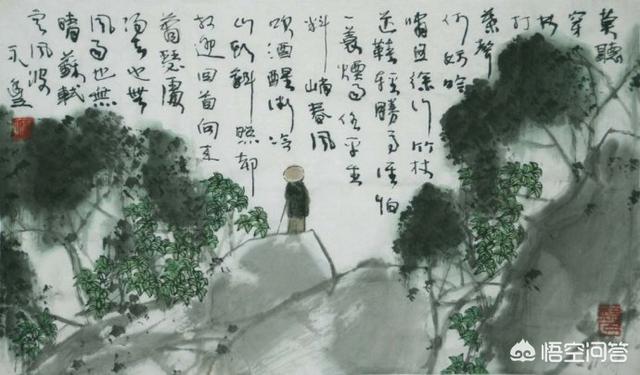 莫聽
穿
林
打
葉聲
何妨吟
嘯且徐行竹杖
芒鞋輕勝馬誰怕
一蓑煙雨任平生
料峭春風
吹酒醒微冷
山頭斜照却
相迎回首向来
蕭瑟處
歸去也無
風雨也無
晴蘇軾
定風波
悟空问答